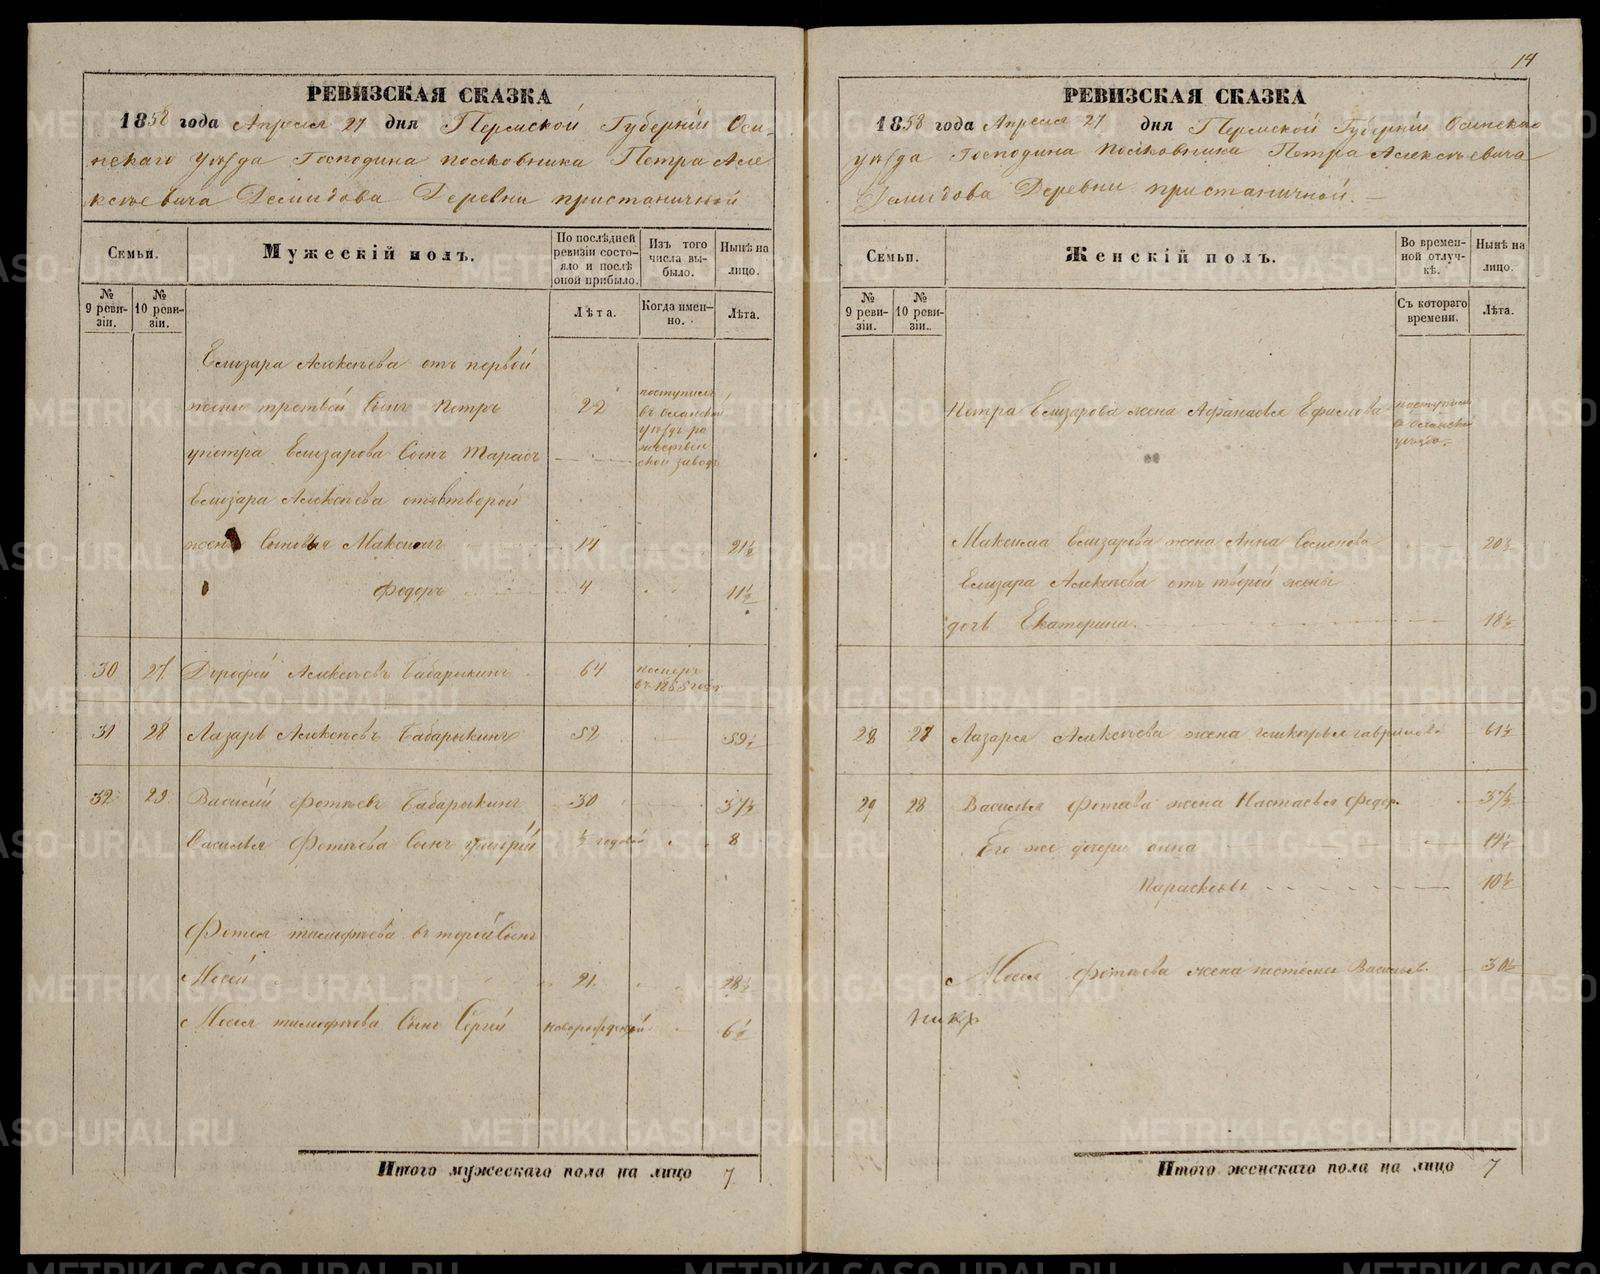 14
РЕВИЗСКАЯ СКАЗКА
1858 года Апреля 27 дня Пермской Губернiи Оси-
нскаго уѣзда Господина полковника Петра Але
ксѣевича Демидова Деревни пристаничной
Семьи.
Мужескiй полъ.
По послѣдней ревизiи состо-
яло и послѣ
оной прибыло.
Изъ того
числа вы-
было.
Нынѣ на
лицо.
№
9 реви-
зiи.
№
10 реви-
зiи.
Лѣта.
Когда имен-
но.
Лѣта.
Елизара Алексѣева отъ первой
жены третей Сынъ Петръ 22 поступилъ
въ Оханской
уѣздъ ро
жествен
ской заводъ
Петра Елизарова Сынъ Тарасъ
Елизара Алексѣева отъ второй
жены Сыновья Максимъ 14 21½
Федоръ 4 11½
30 27 Дорофей Алексѣевъ Бабарыкинъ 64 померъ
въ 1855 годѣ
31 28 Лазарь Алексѣевъ Бабарыкинъ 52 59½
32 29 Василiй Фотѣевъ Бабарыкинъ 30 37½
Василья Фотѣева Сынъ Григорiй ½ годовой 8
Фотея тимофѣева второй Сынъ
Мосей 21 28½
Мосея тимофѣева Сынъ Сергей новорожденной 6½
Итого мужескаго пола на лицо 7
РЕВИЗСКАЯ СКАЗКА
1858 года Апреля 27 дня Пермской Губернiи Осинскаго
уѣзда Господина Полковника Петра Алексѣевича
Демидова Деревни пристаничной.
Семьи.
Женскiй полъ.
Во времен-
ной отлуч-
кѣ.
Нынѣ на
лицо.
№
9 реви-
зiи.
№
10 реви-
зiи.
Съ котораго
времени.
Лѣта.
Петра Елизарова жена Афанасья Ефимова поступила
в Оханской
уѣздъ
Максима Елизарова жена Анна Семенова 20½
Елизара Алексѣева отъ второй жены
дочь Екатерина. 18½
28 27 Лазаря Алексѣева жена гликерья гаврилова 61½
29 28 Василья Фотеева жена Настасья Федор. 37½
Его же дочери анна 14½
Парасковья 10½
Мосея Фотѣева жена Васильев. 30½
Итого женскаго пола на лицо 7
METRIKI.GASO-URAL.RU